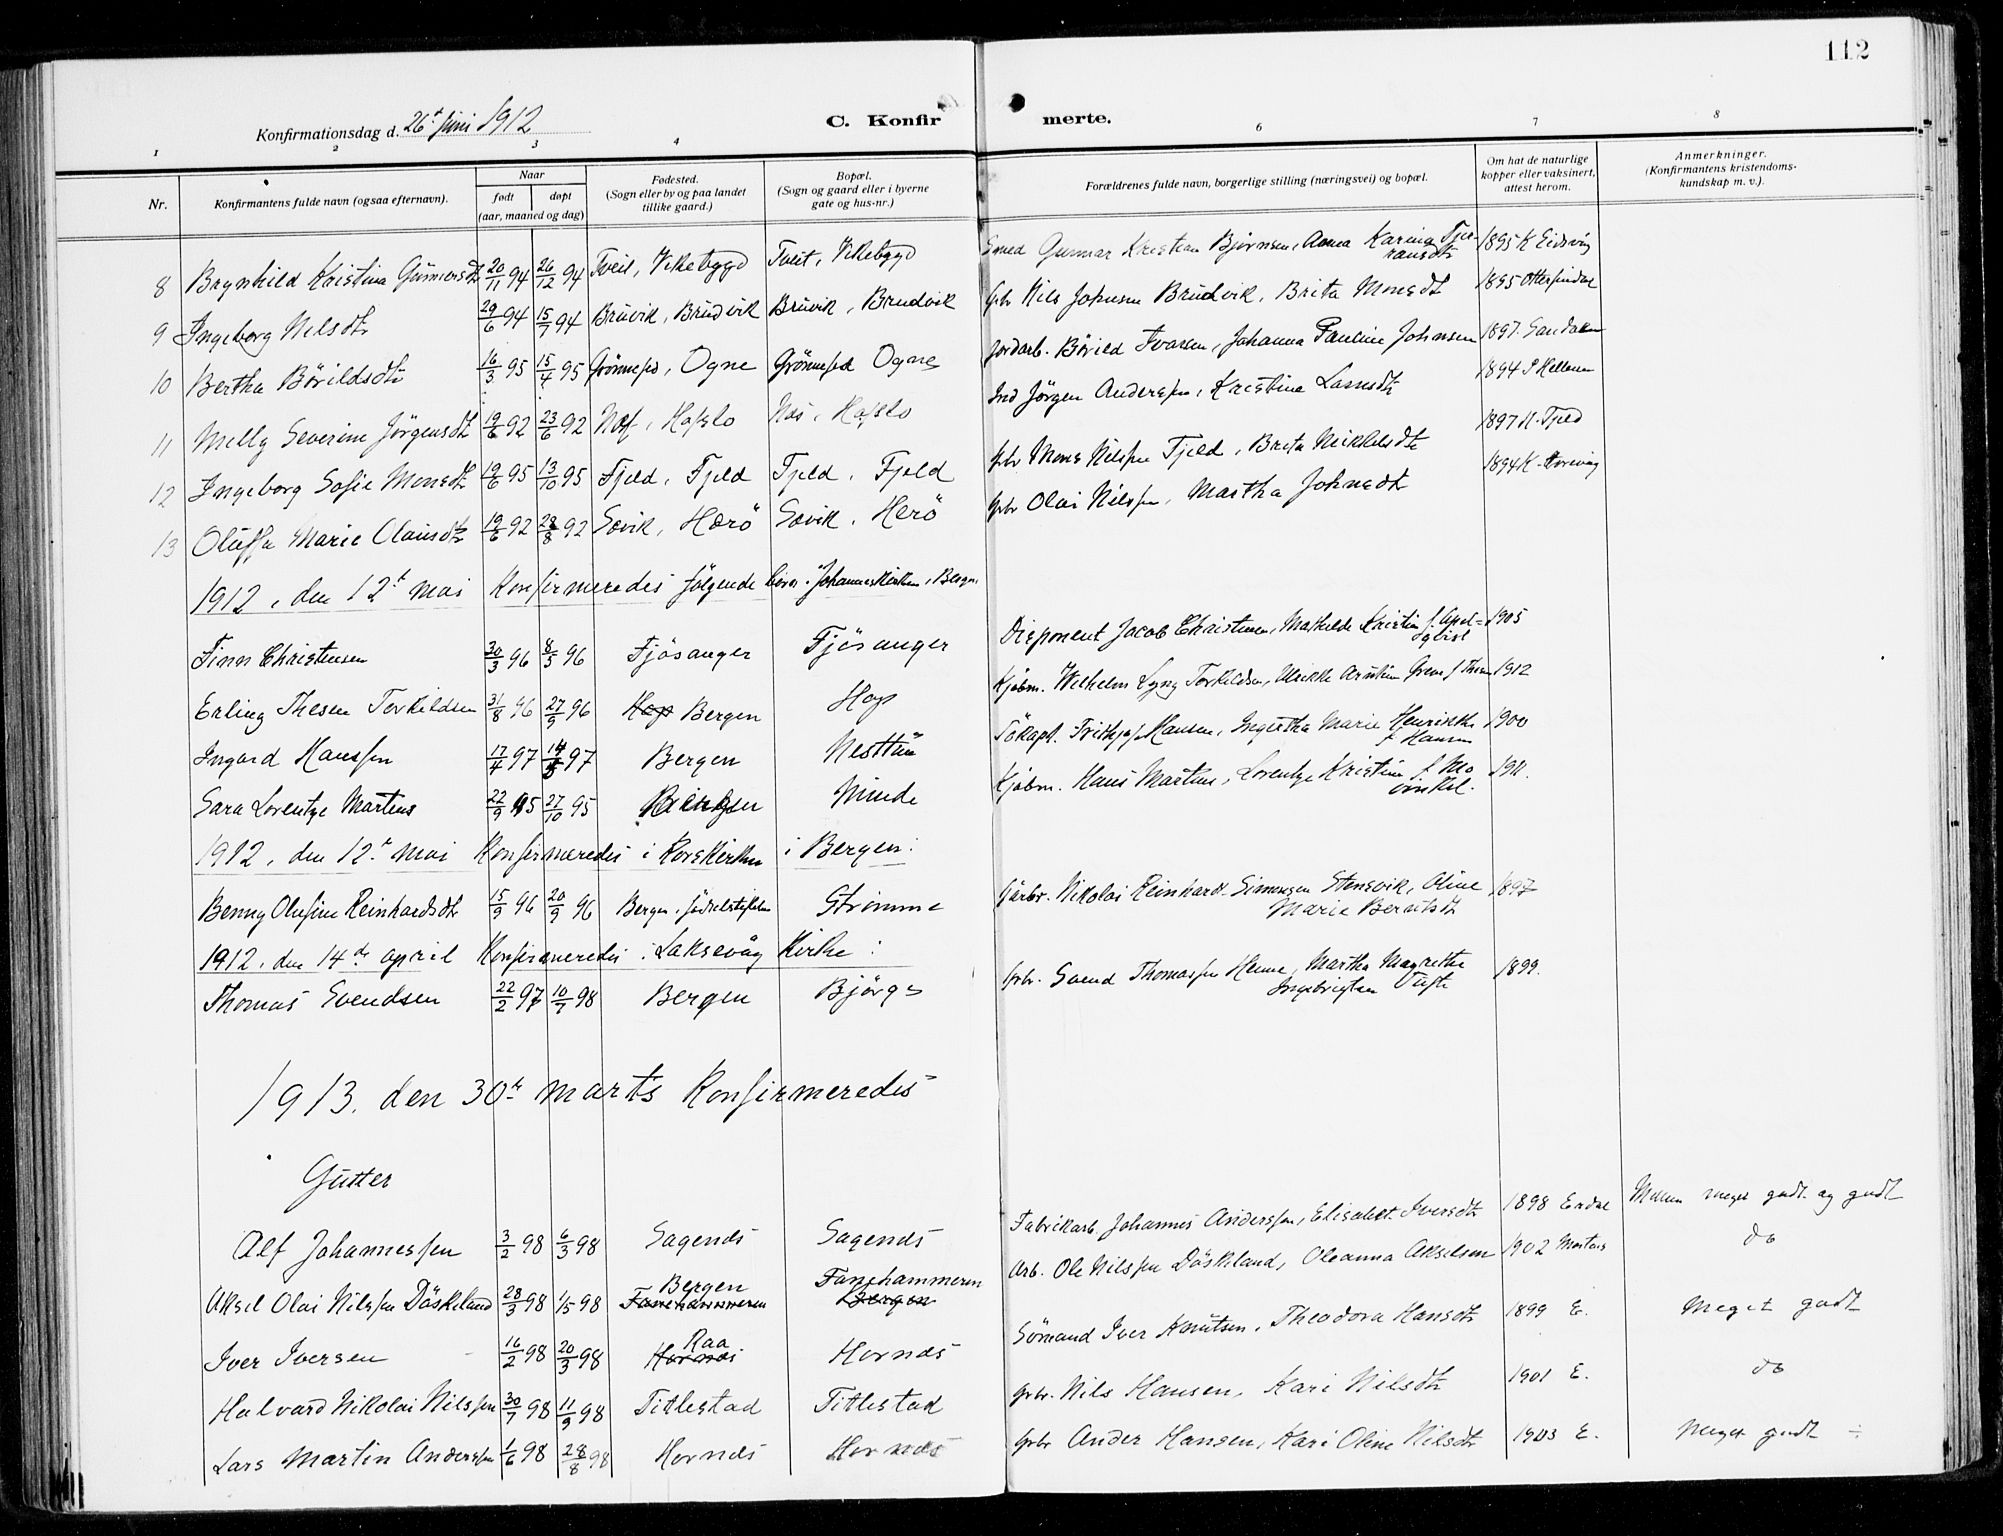 112
Konfirmationsdag d. 26de Juni 1912
C. Konfirmerte.
1 2 3 4 6 7 8
Nr. Konfirmantens fulde navn (ogsaa efternavn). Naar født døpt (aar, maaned og dag) Fødested. (Sogn eller by og paa landet tillike gaard.) Bopæl. (Sogn og gaard eller i byerne gate og hus-nr.) Forældrenes fulde navn, borgerlige stilling (næringsvei) og bopæl. Om hat de naturlige kopper eller vaksinert, attest herom. Anmerkninger. (Konfirmantens kristendomskundskap m. v.).
8 Brynhild Kristina Gunnarsdtr 20/11 94 26/12 94 Tveit, Vikebygd Tveit, Vikebygd Smed Gunnar Kristian Bjørnsen, Anna Karina 1895 K Eidsvåg
9 Ingeborg Nilsdtr 29/6 94 15/7 94 Bruvik, Brudvik Bruvik, Brudvik Gbr Nils Johnsen Brudvik, Brita Monsdtr 1895
10 Bertha Börildsdtr 16/3 95 15/4 95 Grönnesfed, Ogne Grönnesfed Ogne Jordarb. Börild Ivarsen, Johanna Pauline Johnsen 1897
11 Milly Severine Jörgensdtr 19/6 92 23/6 92 Næs, Hafslo Næs, Hafslo Ind Jörgen Anderssen, Kristina Larsdtr 1894
12 Ingeborg Sofie Monsdtr 19/6 95 13/10 95 Fjeld, Fjeld Fjeld, Fjeld Gbr Mons Nilssen Fjeld, Brita Mikkelsdtr 1897 N. Fjeld
13 Oluffa Marie Olaisdtr 19/6 92 28/8 92 Søvik, Herö Søvik, Herö Gbr Olai Nilssen, Martha Johnsdtr 1894
1912, den 12te mai Konfirmeredes følgende börn i Johanneskirken, Bergen
Finn Christensen 30/3 96 8/5 96 Fjösanger Fjösanger Disponent Jacob Christensen, Mathilde Kristin f. Apelqvist 1905
Erling Thesen Torkildsen 31/8 96 27/9 96 Hop Bergen Hop Kjøbm. Wilhelm Lyng Torkildsen, 1912
Ingard Hanssen 17/4 97 14/5 97 Bergen Nesttun Sökapt. Frithjof Hansen, Ingertha Marie Henrikke f. Hansen 1900
Sara Lorentze Martens 22/9 95 27/10 95 Bergen Minde Kjøbm. Hans Martens, Lorentze Kristine f. Mowinkel. 1911.
1912, den 12te mai Konfirmeredes i Korskirken i Bergen:
Benny Olufine Reinhardsdtr 15/9 96 20/9 96 Bergen, fødselsstiftelsen Strømme Garbr. Nikolai Reinhardt Simonsen Stensvik, Oline Marie Berntsdtr 1897
1912, den 14de april Konfirmeredes i Laksevåg Kirke:
Thomas Svendsen 22/2 97 10/7 98 Bergen Björge Gbr. Svend Thomassen Hamre, Martha Magrethe Ingebrigtsen Tufte 1899.
1913, den 30te marts Konfirmeredes
Gutter
Alf Johannessen 3/2 98 6/3 98 Søgenes Søgenes Fabrikarb. Johannes Anderssen, Elisabet Iversdtr 1898 Erdal Mellem meget godt og godt
Aksel Olai Nilssen Döskeland 28/3 98 1/5 98 Bergen Fanehammeren Fanehammeren Bergen Arb. Ole Nilssen Döskeland, Oleanna Akselsen 1902 Martens do
Iver Iversen 16/2 98 20/3 98 Raa Hornæs Hornæs Sömand Iver Knutsen, Theodora Hansdtr 1899 E. Meget godt
Halvard Nikolai Nilssen 30/7 98 11/9 98 Titlestad Titlestad Gbr. Nils Hansen, Kari Nilsdtr 1901 E. do
Lars Martin Anderssen 1/6 98 28/8 98 Hornæs Hornæs Gbr Anders Hansen, Kari Oline Nilsdtr 1903 E. Meget godt ÷